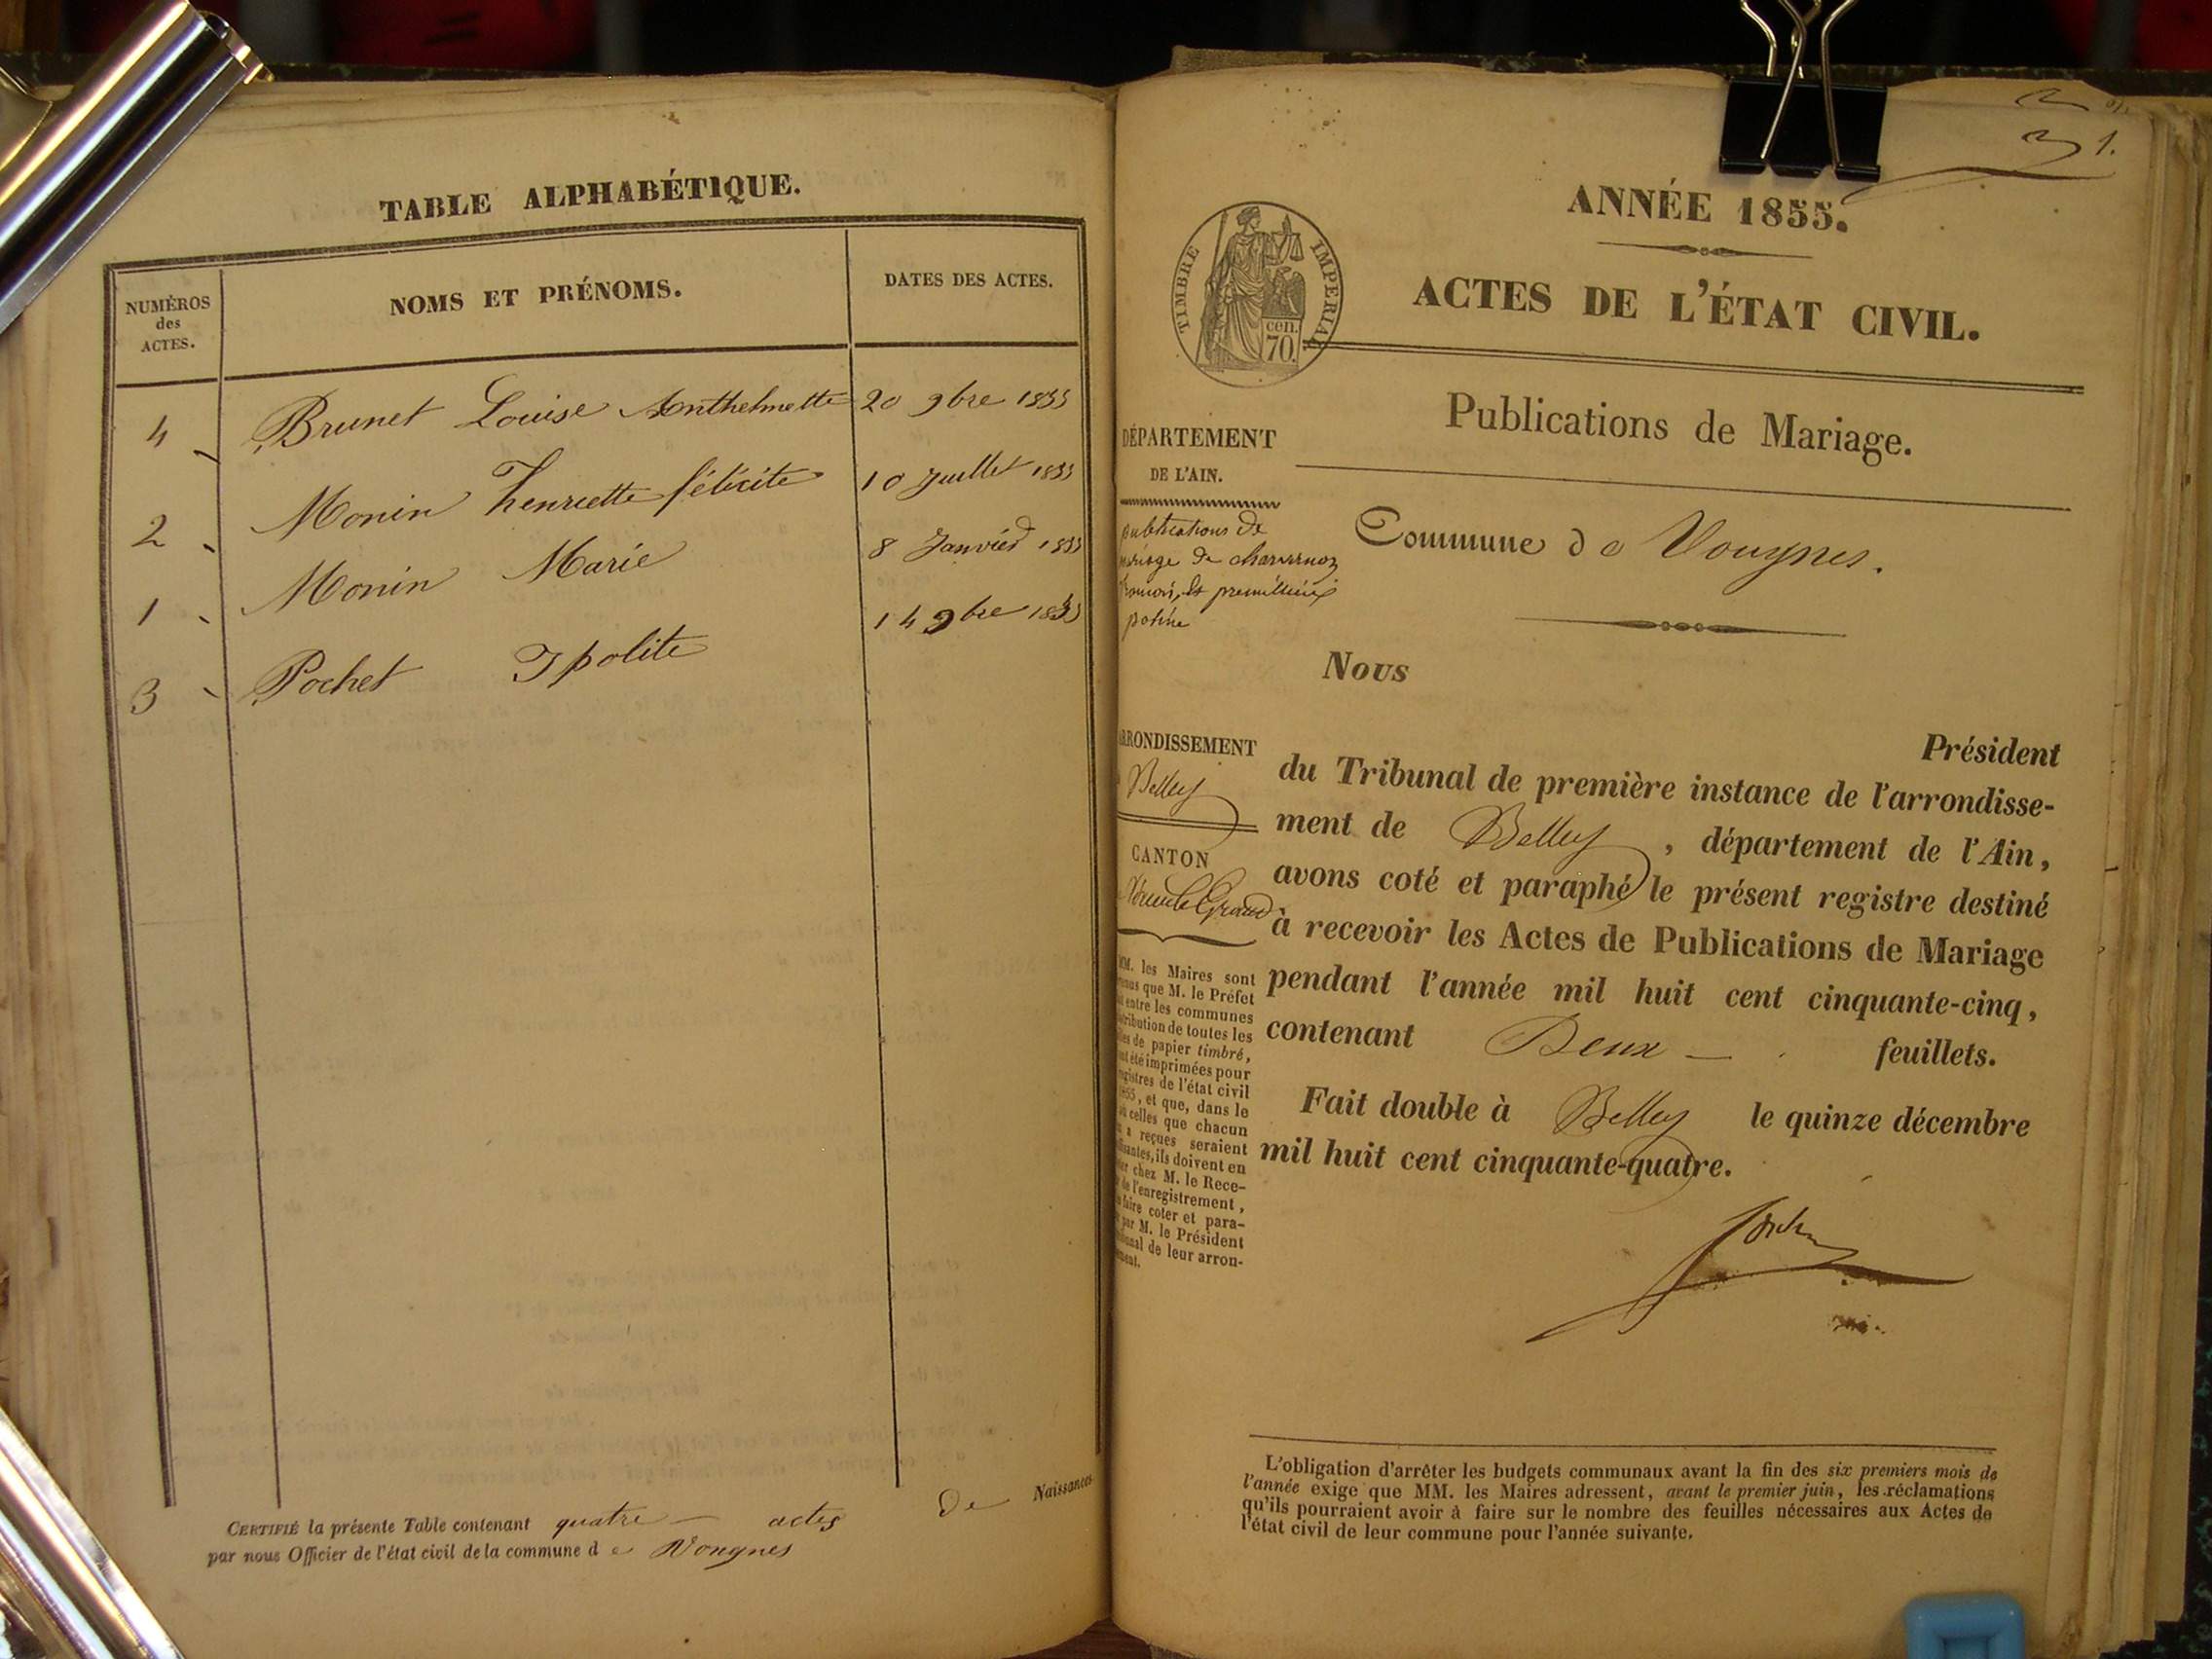 TABLE ALPHABÉTIQUE.
NUMÉROS
des
ACTES.
NOMS ET PRÉNOMS.
DATES DES ACTES.
4 Brunet Louise Anthelmette 20 9bre 1855
2 Monin henriette félicité 10 Juillet 1855
1 Monin Marie 8 Janvier 1855
3 Pochet Ipolite 14 9bre 1855
CERTIFIÉ la présente Table contenant quatre — actes de Naissances
par nous Officier de l'état civil de la commune de Vongnes
1.
ANNÉE 1855.
TIMBRE IMPERIAL
cen.
70.
ACTES DE L'ÉTAT CIVIL.
Publications de Mariage.
DÉPARTEMENT
DE L'AIN.
publications de
mariage de
Commune de Vougnes.
Nous
ARRONDISSEMENT
Belley
CANTON
Président
du Tribunal de première instance de l'arrondisse-
ment de Belley, département de l'Ain,
avons coté et paraphé le présent registre destiné
à recevoir les Actes de Publications de Mariage
pendant l'année mil huit cent cinquante-cinq,
contenant Deux — feuillets.
Fait double à Belley le quinze décembre
mil huit cent cinquante-quatre.
MM. les Maires sont
que M. le Préfet
entre les communes
de toutes les
de papier timbré,
été imprimées pour
de l'état civil
, et que, dans le
celles que chacun
a reçues seraient
, ils doivent en
chez M. le Rece-
de l'enregistrement,
faire coter et para-
par M. le Président
de leur arron-
L'obligation d'arrêter les budgets communaux avant la fin des six premiers mois de
l'année exige que MM. les Maires adressent, avant le premier juin, les réclamations
qu'ils pourraient avoir à faire sur le nombre des feuilles nécessaires aux Actes de
l'état civil de leur commune pour l'année suivante.